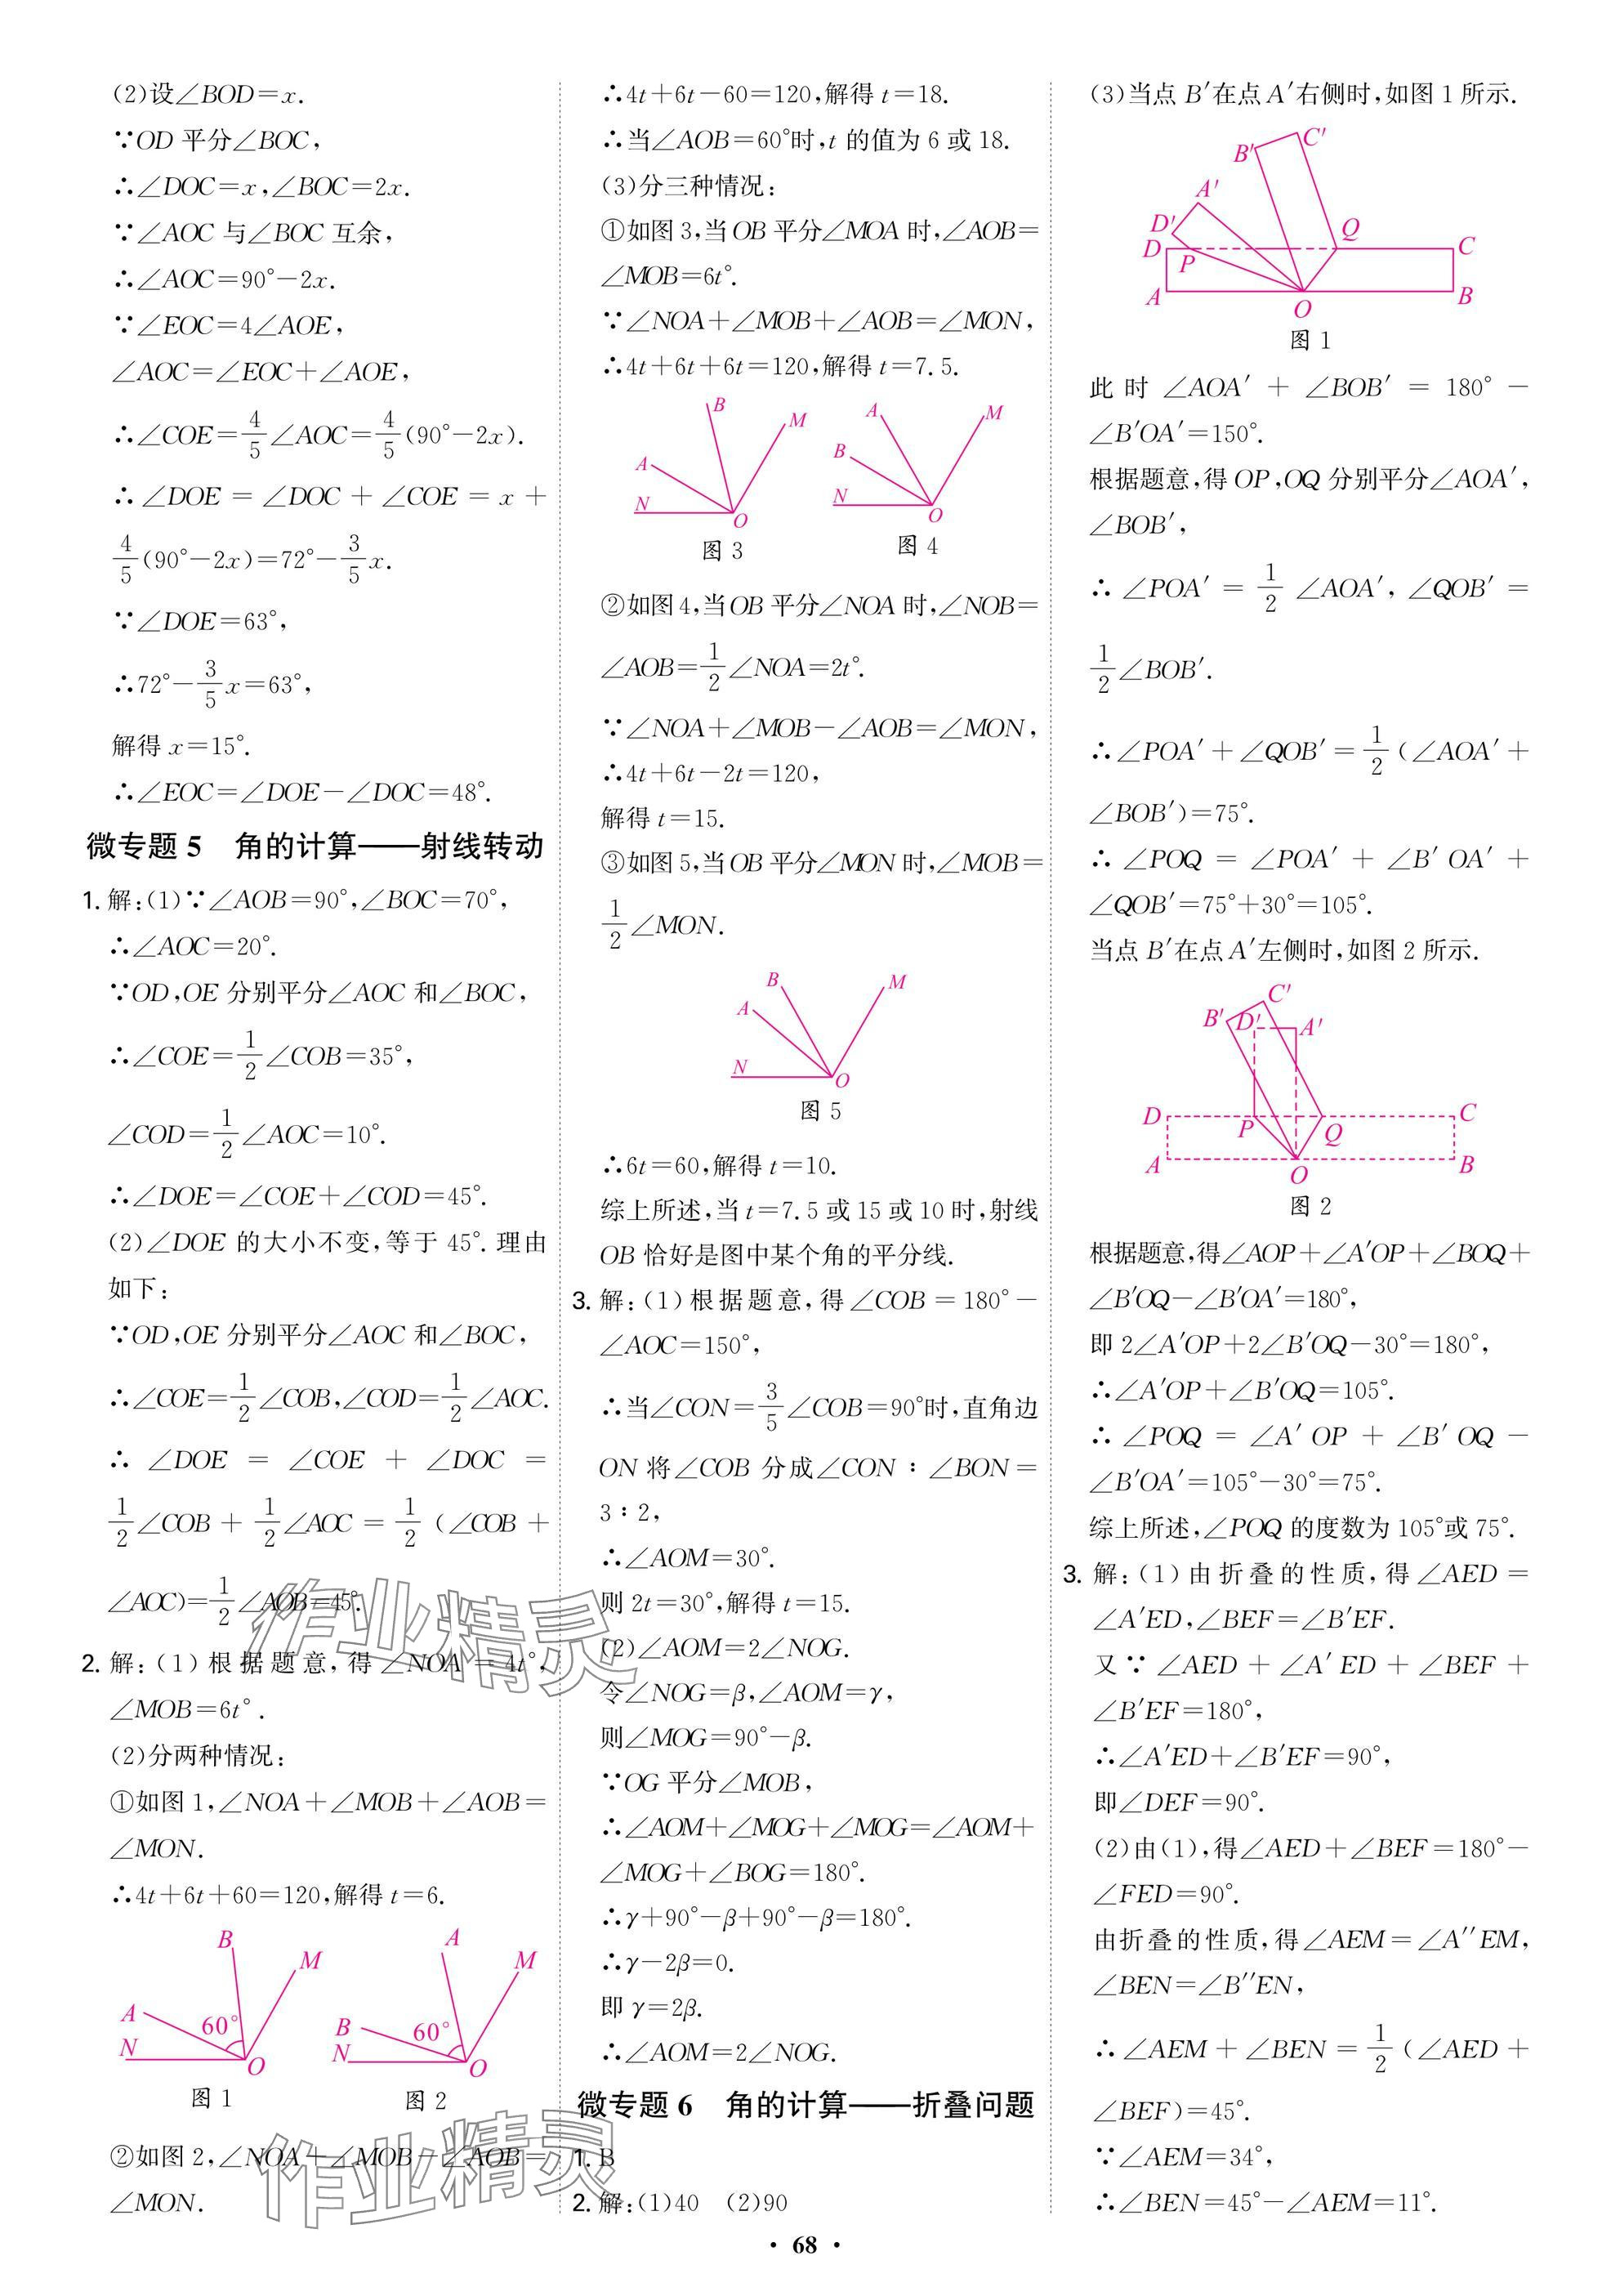 (2)设∠BOD=x.
∵OD 平分∠BOC,
∴∠DOC=x,∠BOC=2x.
∵∠AOC 与∠BOC 互余,
∴∠AOC=90°-2x.
∵∠EOC=4∠AOE,
∠AOC=∠EOC+∠AOE,
∴∠COE=4/5∠AOC=4/5(90°-2x).
∴∠DOE=∠DOC+∠COE=x+
4/5(90°-2x)=72°-3/5x.
∵∠DOE=63°,
∴72°-3/5x=63°,
解得 x=15°.
∴∠EOC=∠DOE-∠DOC=48°.
微专题 5 角的计算——射线转动
1. 解:(1)∵∠AOB=90°,∠BOC=70°,
∴∠AOC=20°.
∵OD,OE 分别平分∠AOC 和∠BOC,
∴∠COE=1/2∠COB=35°,
∠COD=1/2∠AOC=10°.
∴∠DOE=∠COE+∠COD=45°.
(2)∠DOE 的大小不变,等于 45°. 理由
如下:
∵OD,OE 分别平分∠AOC 和∠BOC,
∴∠COE=1/2∠COB,∠COD=1/2∠AOC.
∴∠DOE=∠COE+∠DOC=
1/2∠COB+1/2∠AOC=1/2(∠COB+
∠AOC)=1/2∠AOB=45°.
2. 解:(1)根据题意,得∠NOA=4t°,
∠MOB=6t°.
(2)分两种情况:
①如图 1,∠NOA+∠MOB+∠AOB=
∠MON.
∴4t+6t+60=120,解得 t=6.
B
M
A
60°
N
O
图 1
A
M
B
60°
N
O
图 2
②如图 2,∠NOA+∠MOB-∠AOB=
∠MON.
∴4t+6t-60=120,解得 t=18.
∴当∠AOB=60°时,t 的值为 6 或 18.
(3)分三种情况:
①如图 3,当 OB 平分∠MOA 时,∠AOB=
∠MOB=6t°.
∵∠NOA+∠MOB+∠AOB=∠MON,
∴4t+6t+6t=120,解得 t=7.5.
B
M
A
N
O
图 3
A
M
B
N
O
图 4
②如图 4,当 OB 平分∠NOA 时,∠NOB=
∠AOB=1/2∠NOA=2t°.
∵∠NOA+∠MOB-∠AOB=∠MON,
∴4t+6t-2t=120,
解得 t=15.
③如图 5,当 OB 平分∠MON 时,∠MOB=
1/2∠MON.
B
M
A
N
O
图 5
∴6t=60,解得 t=10.
综上所述,当 t=7.5 或 15 或 10 时,射线
OB 恰好是图中某个角的平分线.
3. 解:(1)根据题意,得∠COB=180°-
∠AOC=150°,
∴当∠CON=3/5∠COB=90°时,直角边
ON 将∠COB 分成∠CON:∠BON=
3:2,
∴∠AOM=30°.
则 2t=30°,解得 t=15.
(2)∠AOM=2∠NOG.
令∠NOG=β,∠AOM=γ,
则∠MOG=90°-β.
∵OG 平分∠MOB,
∴∠AOM+∠MOG+∠MOG=∠AOM+
∠MOG+∠BOG=180°.
∴γ+90°-β+90°-β=180°.
∴γ-2β=0.
即 γ=2β.
∴∠AOM=2∠NOG.
微专题 6 角的计算——折叠问题
1. B
2. 解:(1)40 (2)90
(3)当点 B′在点 A′右侧时,如图 1 所示.
C′
B′
A′
D′
Q
D
C
P
A
O
B
图 1
此时∠AOA′+∠BOB′=180°-
∠B′OA′=150°.
根据题意,得 OP,OQ 分别平分∠AOA′,
∠BOB′,
∴∠POA′=1/2∠AOA′,∠QOB′=
1/2∠BOB′.
∴∠POA′+∠QOB′=1/2(∠AOA′+
∠BOB′)=75°.
∴∠POQ=∠POA′+∠B′OA′+
∠QOB′=75°+30°=105°.
当点 B′在点 A′左侧时,如图 2 所示.
C′
B′
D′
A′
D
C
P
Q
A
O
B
图 2
根据题意,得∠AOP+∠A′OP+∠BOQ+
∠B′OQ-∠B′OA′=180°,
即 2∠A′OP+2∠B′OQ-30°=180°,
∴∠A′OP+∠B′OQ=105°.
∴∠POQ=∠A′OP+∠B′OQ-
∠B′OA′=105°-30°=75°.
综上所述,∠POQ 的度数为 105°或 75°.
3. 解:(1)由折叠的性质,得∠AED=
∠A′ED,∠BEF=∠B′EF.
又∵∠AED+∠A′ED+∠BEF+
∠B′EF=180°,
∴∠A′ED+∠B′EF=90°,
即∠DEF=90°.
(2)由(1),得∠AED+∠BEF=180°-
∠FED=90°.
由折叠的性质,得∠AEM=∠A′′EM,
∠BEN=∠B′′EN,
∴∠AEM+∠BEN=1/2(∠AED+
∠BEF)=45°.
∵∠AEM=34°,
∴∠BEN=45°-∠AEM=11°.
作业精灵
作业精灵
· 68 ·